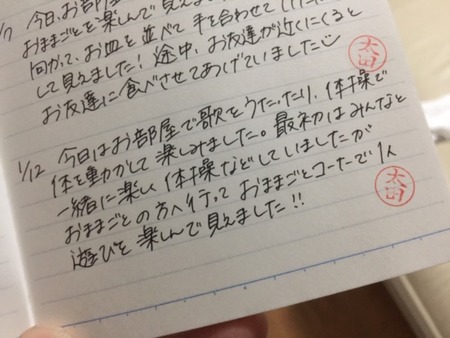 1/7 今日、お部屋
おままごとを楽しんで見え
向かって、お皿を並べて手を合わせて
して見えました！途中、お友達が近くにくると
お友達に食べさせてあげていました
太田
1/12 今日はお部屋で歌をうたったり、体操で
体を動かして楽しみました。最初はみんなと
一緒に楽しく体操などしていましたが
おままごとの方へ行っておままごとコーナーで1人
遊びを楽しんで見えました!!
太田